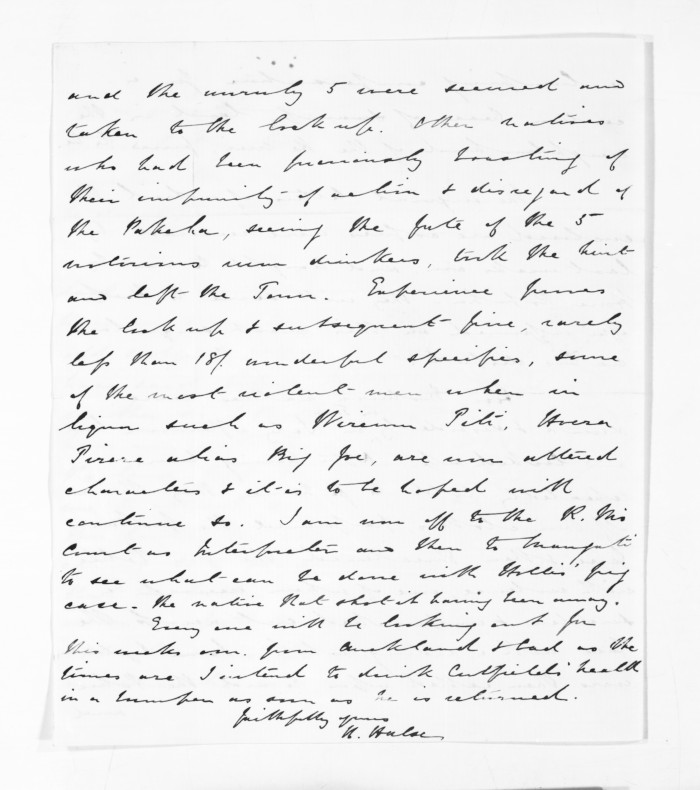 and the unruly 5 were secured and
taken to the lock up. Other natives
who had been previously boasting of
their impunity of action & disregard of
the Pakeha, seeing the fate of the 5
notorious rum drinkers, took the hint
and left the Town. Experience proves
the lock up & subsequent fine, rarely
less than 18/. wonderful specifics, some
of the most violent men when in
liquor such as Wiremu Piti, Hoera
Pirere alias Big Joe, are now altered
characters & it is to be hoped will
continue so. I am now off to the R. Mis
Court as Interpreter and then to
to see what can be done with Hollis' pig
case - the native that shot it having been away.
Every one will be looking out for
this weeks om. from Auckland & bad as the
times are I intend to drink Cutfield's health
in a bumper as soon as he is returned.
Faithfully yours
H. Halse